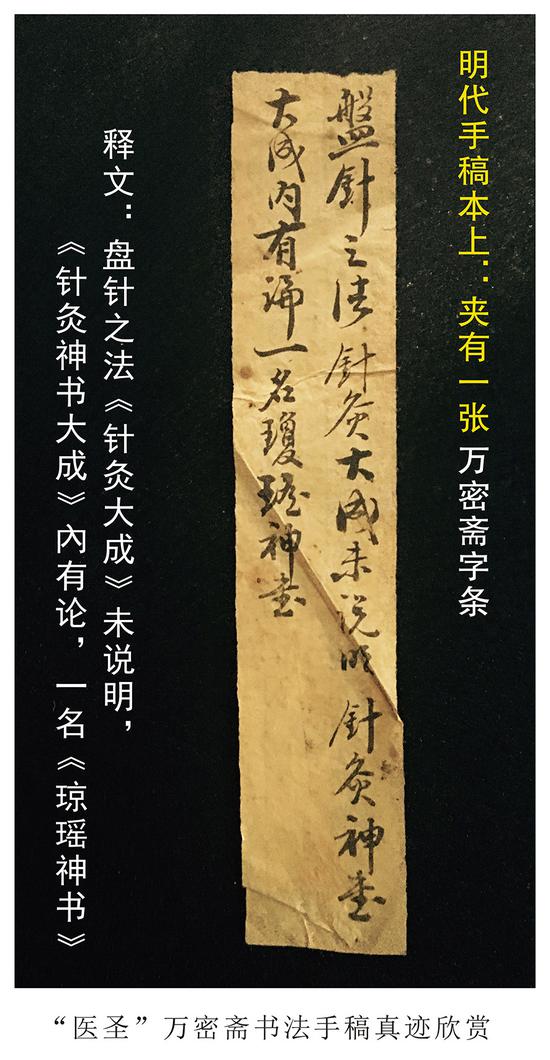 明代手稿本上：夹有一张 万密斋字条
盤針之法 針灸大成未说明 針灸神書
大成内有論一名瓊瑤神書
释文：盘针之法《针灸大成》未说明，
《针灸神书大成》内有论，一名《琼瑶神书》
“医圣”万密斋书法手稿真迹欣赏